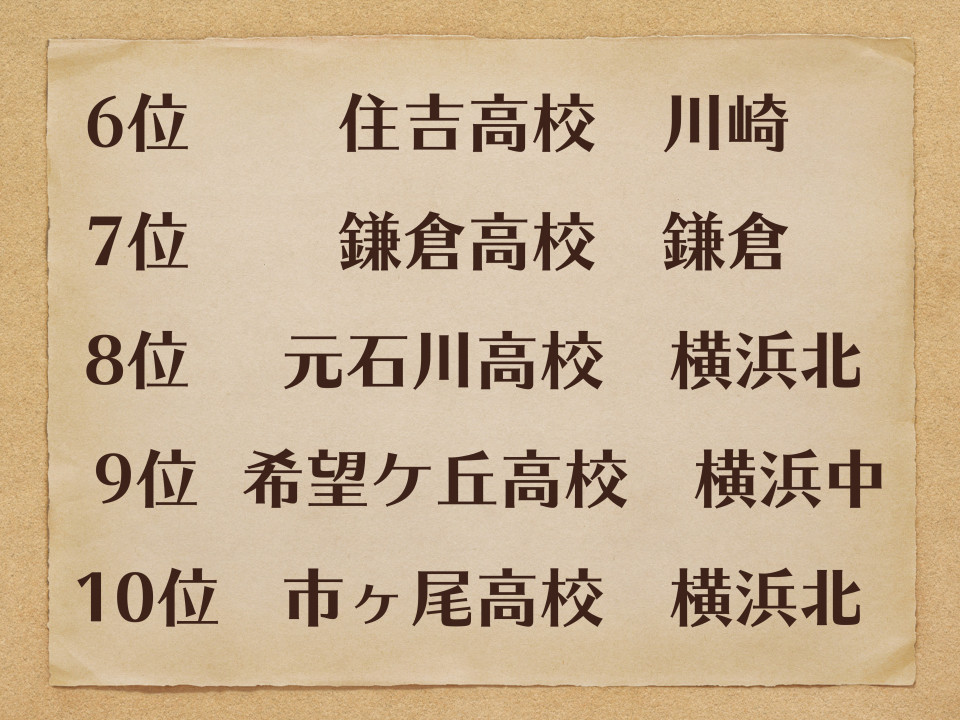 6位 住吉高校 川崎
7位 鎌倉高校 鎌倉
8位 元石川高校 横浜北
9位 希望ケ丘高校 横浜中
10位 市ヶ尾高校 横浜北